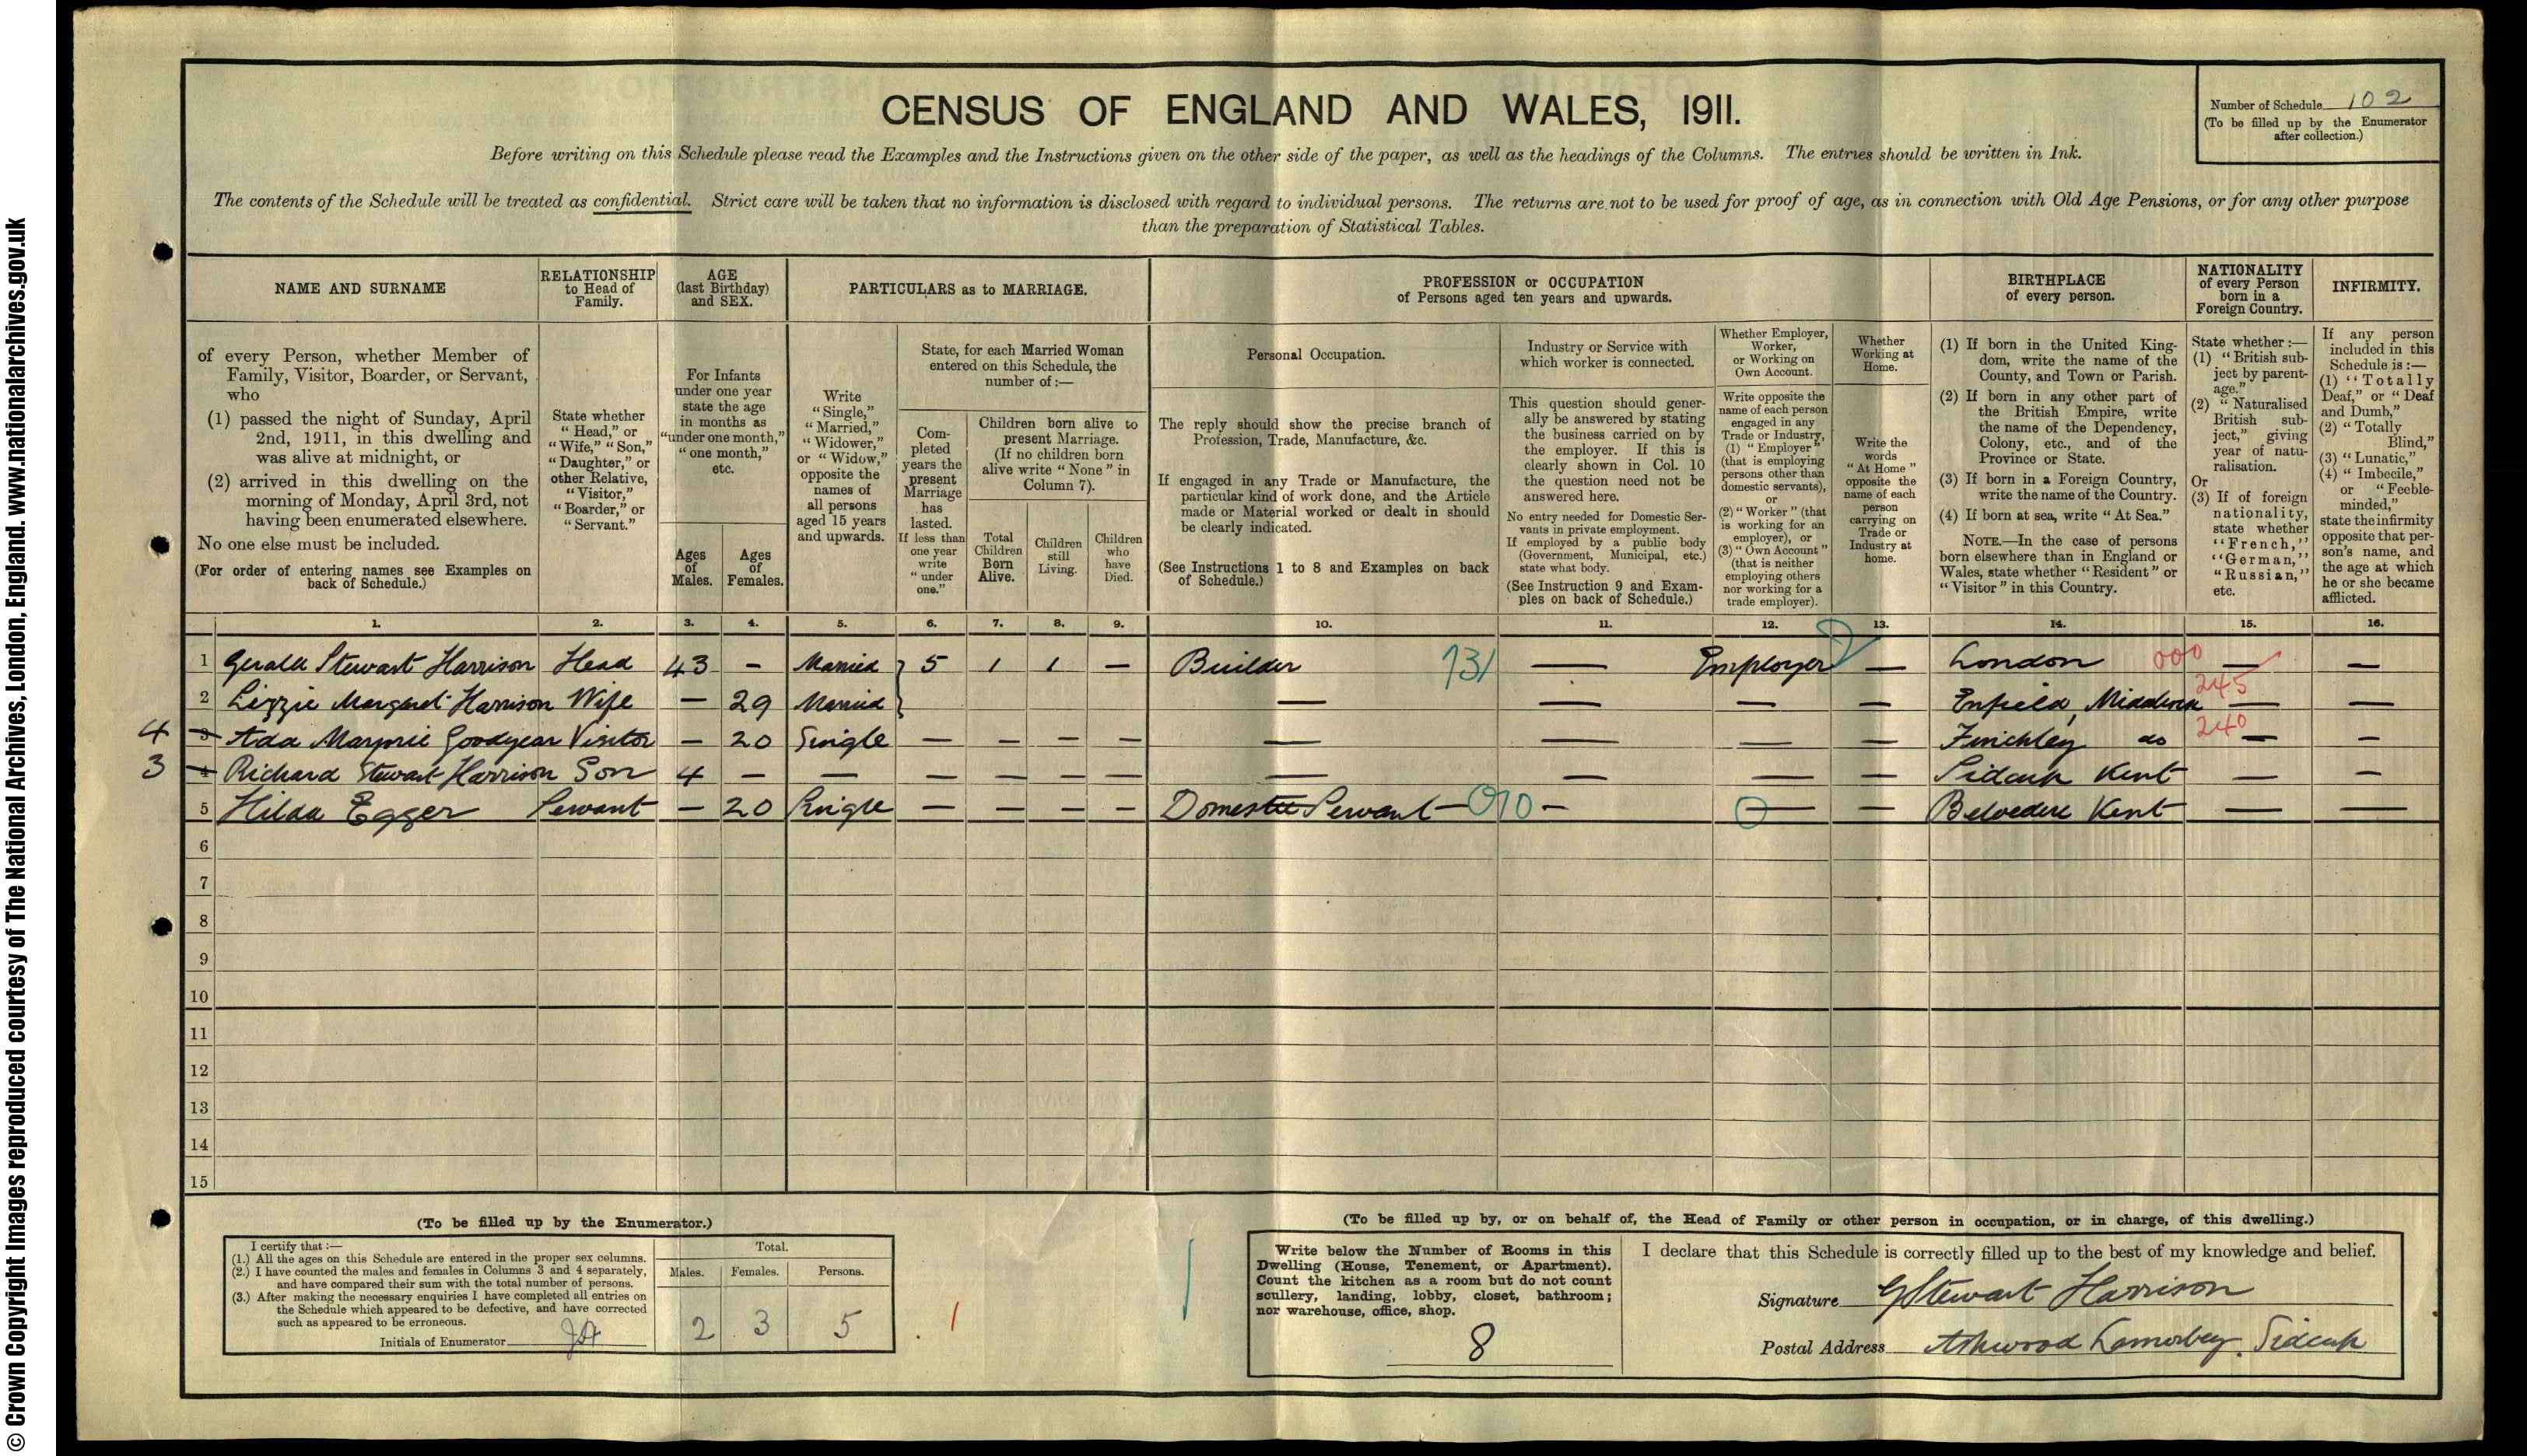 © Crown Copyright Images reproduced courtesy of The National Archives, London, England. www.nationalarchives.gov.uk
CENSUS OF ENGLAND AND WALES, 1911.
Number of Schedule 102
(To be filled up by the Enumerator
after collection.)
Before writing on this Schedule please read the Examples and the Instructions given on the other side of the paper, as well as the headings of the Columns. The entries should be written in Ink.
The contents of the Schedule will be treated as confidential. Strict care will be taken that no information is disclosed with regard to individual persons. The returns are not to be used for proof of age, as in connection with Old Age Pensions, or for any other purpose
than the preparation of Statistical Tables.
NAME AND SURNAME
of every Person, whether Member of
Family, Visitor, Boarder, or Servant,
who
(1) passed the night of Sunday, April
2nd, 1911, in this dwelling and
was alive at midnight, or
(2) arrived in this dwelling on the
morning of Monday, April 3rd, not
having been enumerated elsewhere.
No one else must be included.
(For order of entering names see Examples on
back of Schedule.)
RELATIONSHIP
to Head of
Family.
State whether
"Head," or
"Wife," "Son,"
"Daughter," or
other Relative,
"Visitor,"
"Boarder," or
"Servant."
AGE
(last Birthday)
and SEX.
For Infants
under one year
state the age
in months as
"under one month,"
"one month,"
etc.
Ages
of
Males.
Ages
of
Females.
PARTICULARS as to MARRIAGE.
Write
"Single,"
"Married,"
"Widower,"
or "Widow,"
opposite the
names of
all persons
aged 15 years
and upwards.
State, for each Married Woman
entered on this Schedule, the
number of:—
Com-
pleted
years the
present
Marriage
has
lasted.
If less than
one year
write
"under
one."
Children born alive to
present Marriage.
(If no children born
alive write "None" in
Column 7).
Total
Children
Born
Alive.
Children
still
Living.
Children
who
have
Died.
PROFESSION or OCCUPATION
of Persons aged ten years and upwards.
Personal Occupation.
The reply should show the precise branch of
Profession, Trade, Manufacture, &c.
If engaged in any Trade or Manufacture, the
particular kind of work done, and the Article
made or Material worked or dealt in should
be clearly indicated.
(See Instructions 1 to 8 and Examples on back
of Schedule.)
Industry or Service with
which worker is connected.
This question should gener-
ally be answered by stating
the business carried on by
the employer. If this is
clearly shown in Col. 10
the question need not be
answered here.
No entry needed for Domestic Ser-
vants in private employment.
If employed by a public body
(Government, Municipal, etc.)
state what body.
(See Instruction 9 and Exam-
ples on back of Schedule.)
Whether Employer,
Worker,
or Working on
Own Account.
Write opposite the
name of each person
engaged in any
Trade or Industry,
(1) "Employer"
(that is employing
persons other than
domestic servants),
or
(2) "Worker" (that
is working for an
employer), or
(3) "Own Account"
(that is neither
employing others
nor working for a
trade employer).
Whether
Working at
Home.
Write the
words
"At Home"
opposite the
name of each
person
carrying on
Trade or
Industry at
home.
BIRTHPLACE
of every person.
(1) If born in the United King-
dom, write the name of the
County, and Town or Parish.
(2) If born in any other part of
the British Empire, write
the name of the Dependency,
Colony, etc., and of the
Province or State.
(3) If born in a Foreign Country,
write the name of the Country.
(4) If born at sea, write "At Sea."
NOTE.—In the case of persons
born elsewhere than in England or
Wales, state whether "Resident" or
"Visitor" in this Country.
NATIONALITY
of every Person
born in a
Foreign Country.
State whether:—
(1) "British sub-
ject by parent-
age,"
(2) "Naturalised
British sub-
ject," giving
year of natu-
ralisation.
Or
(3) If of foreign
nationality,
state whether
"French,"
"German,"
"Russian,"
etc.
INFIRMITY.
If any person
included in this
Schedule is:—
(1) "Totally
Deaf," or "Deaf
and Dumb,"
(2) "Totally
Blind,"
(3) "Lunatic,"
(4) "Imbecile,"
or "Feeble-
minded,"
state the infirmity
opposite that per-
son's name, and
the age at which
he or she became
afflicted.
1. 2. 3. 4. 5. 6. 7. 8. 9. 10. 11. 12. 13. 14. 15. 16.
1 Gerald Stewart Harrison Head 43 — Married 5 1 1 — Builder 731 — Employer — London 000 — —
2 Lizzie Margaret Harrison Wife — 29 Married — — — — Enfield, Middlesex 245 — —
4 3 Ada Marjorie Goodyear Visitor — 20 Single — — — — — — — — Finchley do 240 — —
3 4 Richard Stewart Harrison Son 4 — — — — — — — — — — Sidcup Kent — —
5 Hilda Egger Servant — 20 Single — — — — Domestic Servant — 010 — — — Belvedere Kent — —
6
7
8
9
10
11
12
13
14
15
(To be filled up by the Enumerator.)
I certify that:—
(1.) All the ages on this Schedule are entered in the proper sex columns.
(2.) I have counted the males and females in Columns 3 and 4 separately,
and have compared their sum with the total number of persons.
(3.) After making the necessary enquiries I have completed all entries on
the Schedule which appeared to be defective, and have corrected
such as appeared to be erroneous.
Initials of Enumerator
Total.
Males. Females. Persons.
2 3 5
(To be filled up by, or on behalf of, the Head of Family or other person in occupation, or in charge, of this dwelling.)
Write below the Number of Rooms in this
Dwelling (House, Tenement, or Apartment).
Count the kitchen as a room but do not count
scullery, landing, lobby, closet, bathroom;
nor warehouse, office, shop.
8
I declare that this Schedule is correctly filled up to the best of my knowledge and belief.
Signature G Stewart Harrison
Postal Address Ashwood Lamorbey. Sidcup